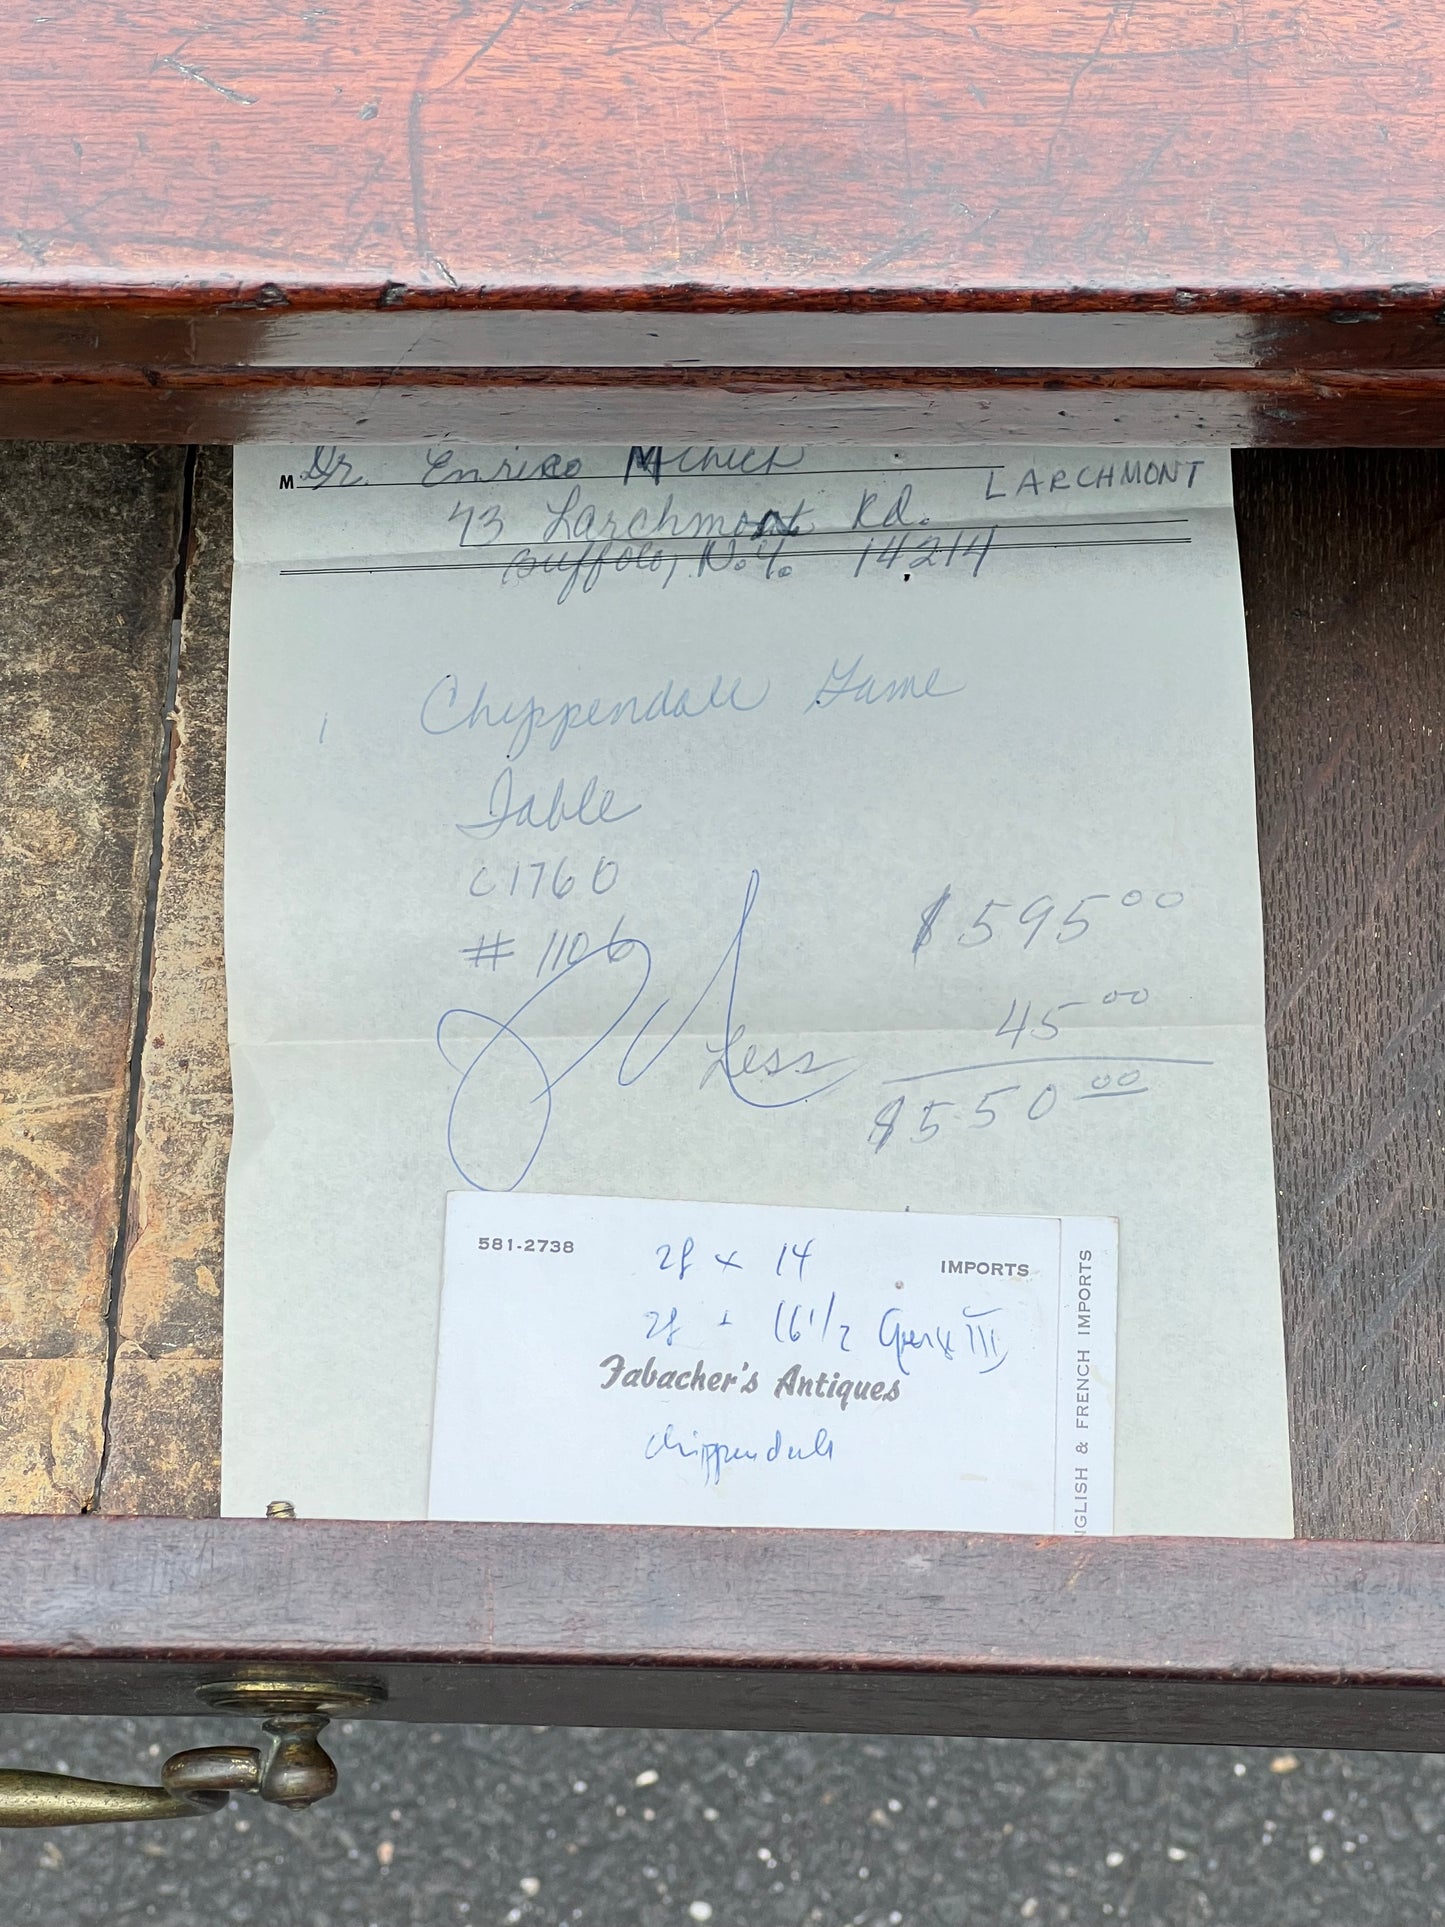 M Dr. Enrico
LARCHMONT
73 Larchmont Rd.
Buffolo, N.Y. 14214
1 Chippendale Game
Table
C1760
# 1106
$595.00
Less 45.00
$550.00
581-2738
28 x 14
IMPORTS
28 x 16 1/2 George III
Fabacher's Antiques
Chippendale
NGLISH & FRENCH IMPORTS